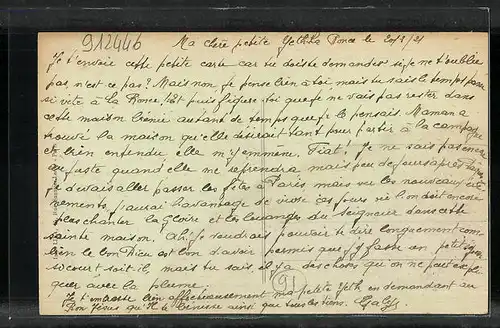 912446
Ma chère petite Yeth La Ronce le 20/3/21
Je t'envoie cette petite carte car tu dois te demander si je ne t'oublie
pas, n'est ce pas? Mais non, je pense bien à toi mais tu sais le temps passe
si vite à la Ronce! Et puis figure toi que je ne vais pas rester dans
cette maison bénie autant de temps que je le pensais. Maman a
trouvé la maison qu'elle désirait tant pour partir à la campagne
et bien entendu elle m'y emmène. Fiat! Je ne sais pas encore
au juste quand elle me reprendra mais peu de jours après
je devais aller passer les fêtes à Paris mais vu les nouveaux évé
nements, j'aurai l'avantage de vivre ces jours où l'on doit encore
plus chanter la Gloire et les louanges du Seigneur dans cette
sainte maison. Ah! je voudrais pouvoir te dire longuement com
bien le bon Dieu est bon d'avoir permis que j'y fasse un petit séjour
si court soit-il, mais tu sais, il y a des choses qu'on ne peut expli
quer avec la plume. 91
Je t'embrasse bien affectueusement ma petite Yeth, en demandant au
Bon Jésus qu'Il te bénisse ainsi que tous les tiens.